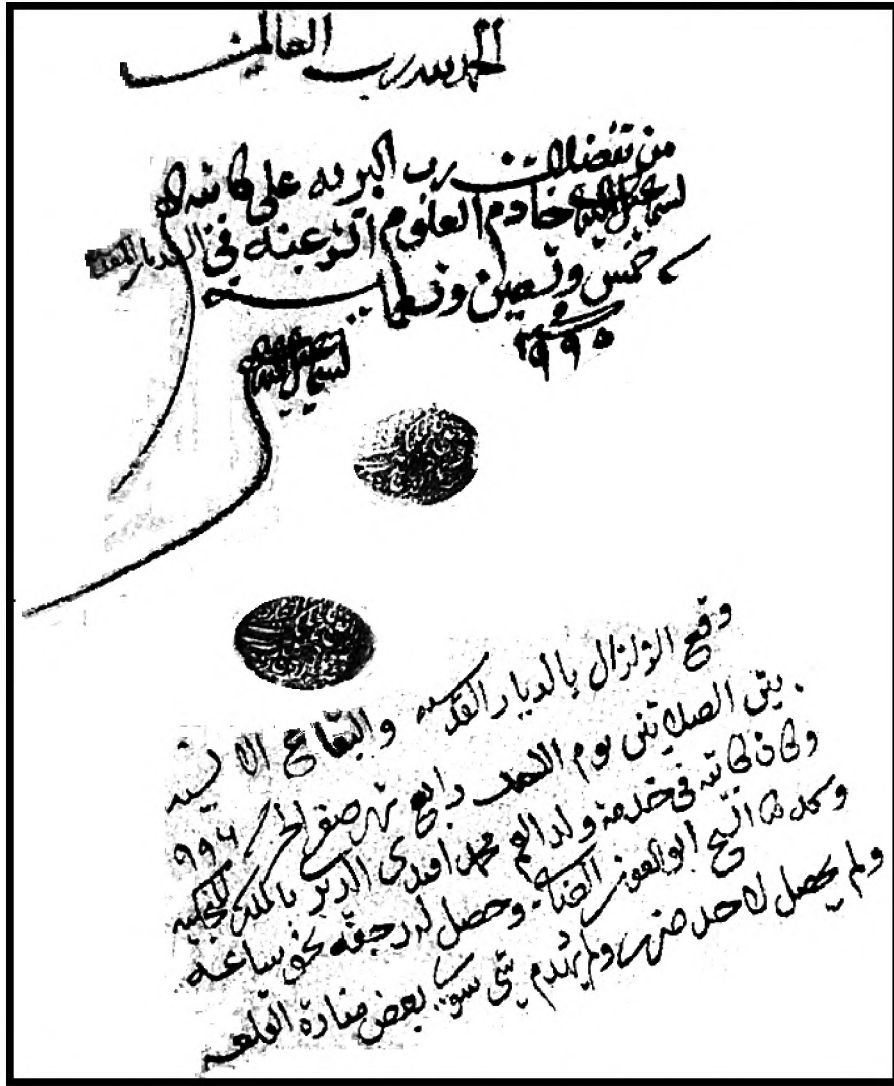 الحمد لله رب العالمين
من تفضلات رب البرية على كاتبه
خادم العلوم الشرعية في الديار
خمس وتسعين وتسعمائة
٩٩٥
وقع الزلزال بالديار القدسية والبقاع الانسية
بين الصلاتين يوم الاحد رابع شهر صفر الخير ٩٩٦
وكان كاتبه في خدمة ولد العم محمد افندي الديري بالمدرسة
وكذا الشيخ ابو العون وحصل له رجفة نحو ساعة
ولم يحصل لاحد ضرر ولم ينهدم شي سوى بعض منارة القلعة